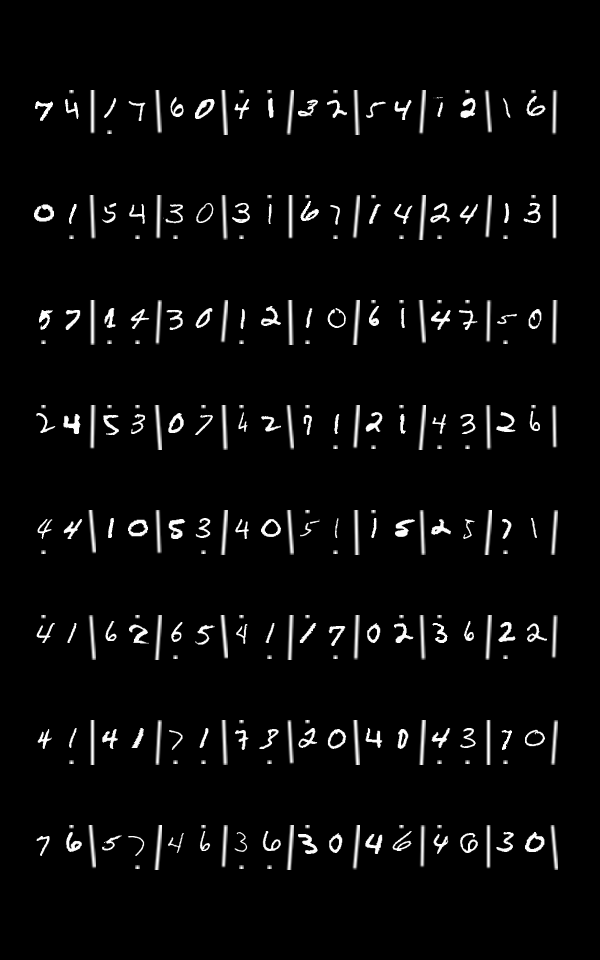 7 4 | 1 7 | 6 0 | 4 1 | 3 2 | 5 4 | 1 2 | 1 6 |
0 1 | 5 4 | 3 0 | 3 1 | 6 7 | 1 4 | 2 4 | 1 3 |
5 7 | 1 4 | 3 0 | 1 2 | 1 0 | 6 1 | 4 7 | 5 0 |
2 4 | 5 3 | 0 7 | 4 2 | 7 1 | 2 1 | 4 3 | 2 6 |
4 4 | 1 0 | 5 3 | 4 0 | 5 1 | 1 5 | 2 5 | 7 1 |
4 1 | 6 2 | 6 5 | 4 1 | 1 7 | 0 2 | 3 6 | 2 2 |
4 1 | 4 1 | 7 1 | 7 3 | 2 0 | 4 0 | 4 3 | 7 0 |
7 6 | 5 7 | 4 6 | 3 6 | 3 0 | 4 6 | 4 6 | 3 0 |